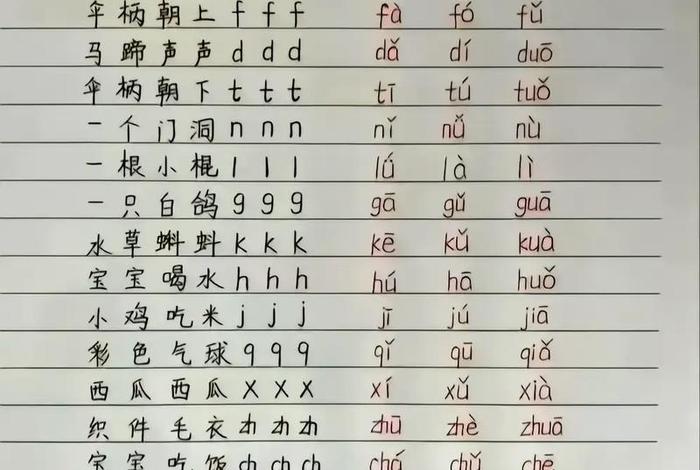 伞柄朝上 f f f fà fó fǔ
马蹄声声 d d d dǎ dí duō
伞柄朝下 t t t tī tú tuǒ
一个门洞 n n n nǐ nǔ nù
一根小棍 l l l lú là lì
一只白鸽 g g g gā gǔ guā
水草蝌蚪 k k k kē kǔ kuà
宝宝喝水 h h h hú hā huǒ
小鸡吃米 j j j jī jú jiā
彩色气球 q q q qǐ qū qiǎ
西瓜西瓜 x x x xí xǔ xià
织件毛衣 zh zh zh zhū zhè zhuā
宝宝吃饭 ch ch ch chá chǔ chē